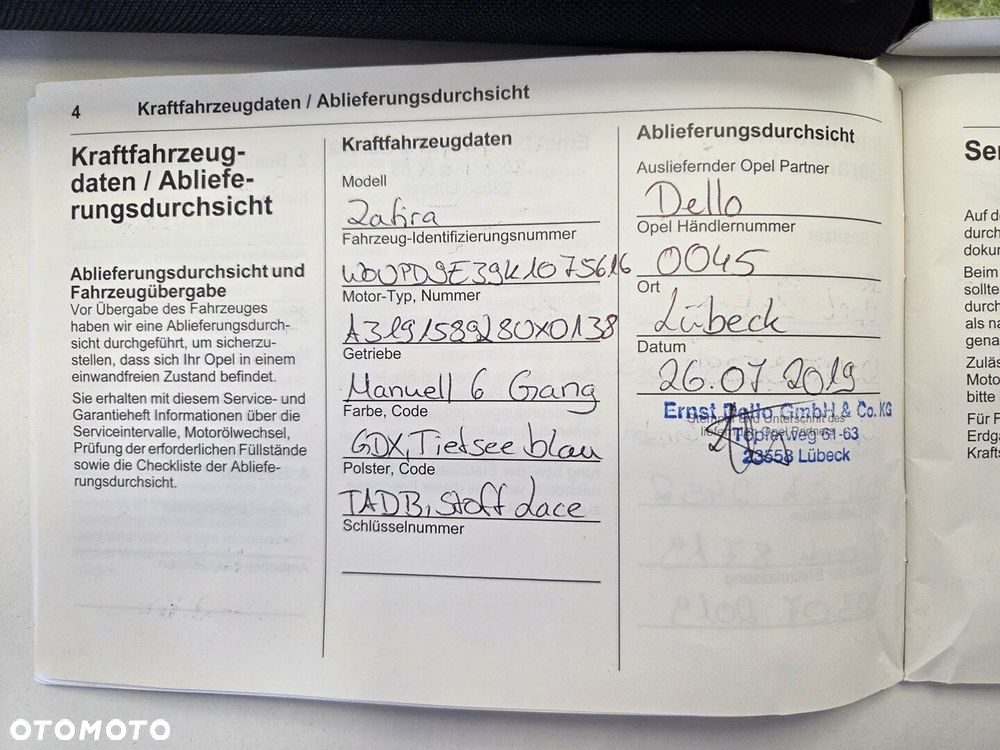 4 Kraftfahrzeugdaten / Ablieferungsdurchsicht
Kraftfahrzeug-
daten / Abliefe-
rungsdurchsicht
Ablieferungsdurchsicht und
Fahrzeugübergabe
Vor Übergabe des Fahrzeuges
haben wir eine Ablieferungsdurch-
sicht durchgeführt, um sicherzu-
stellen, dass sich Ihr Opel in einem
einwandfreien Zustand befindet.
Sie erhalten mit diesem Service- und
Garantieheft Informationen über die
Serviceintervalle, Motorölwechsel,
Prüfung der erforderlichen Füllstände
sowie die Checkliste der Abliefe-
rungsdurchsicht.
Kraftfahrzeugdaten
Modell
Zafira
Fahrzeug-Identifizierungsnummer
W0UPD9E39K1075616
Motor-Typ, Nummer
A319/589280X0138
Getriebe
Manuell 6 Gang
Farbe, Code
GDX, Tiefsee blau
Polster, Code
TADB, Stoff Lace
Schlüsselnummer
Ablieferungsdurchsicht
Ausliefernder Opel Partner
Dello
Opel Händlernummer
0045
Ort
Lübeck
Datum
26.07.2019
Ernst Dello GmbH & Co. KG
Stempel und Unterschrift des
liefernden Opel Partners
Töpferweg 61-63
23558 Lübeck
Ser
Auf de
durch
dokun
Beim
sollte
durch
als na
gena
Zuläs
Moto
bitte
Für F
Erdga
Krafts
OTOMOTO